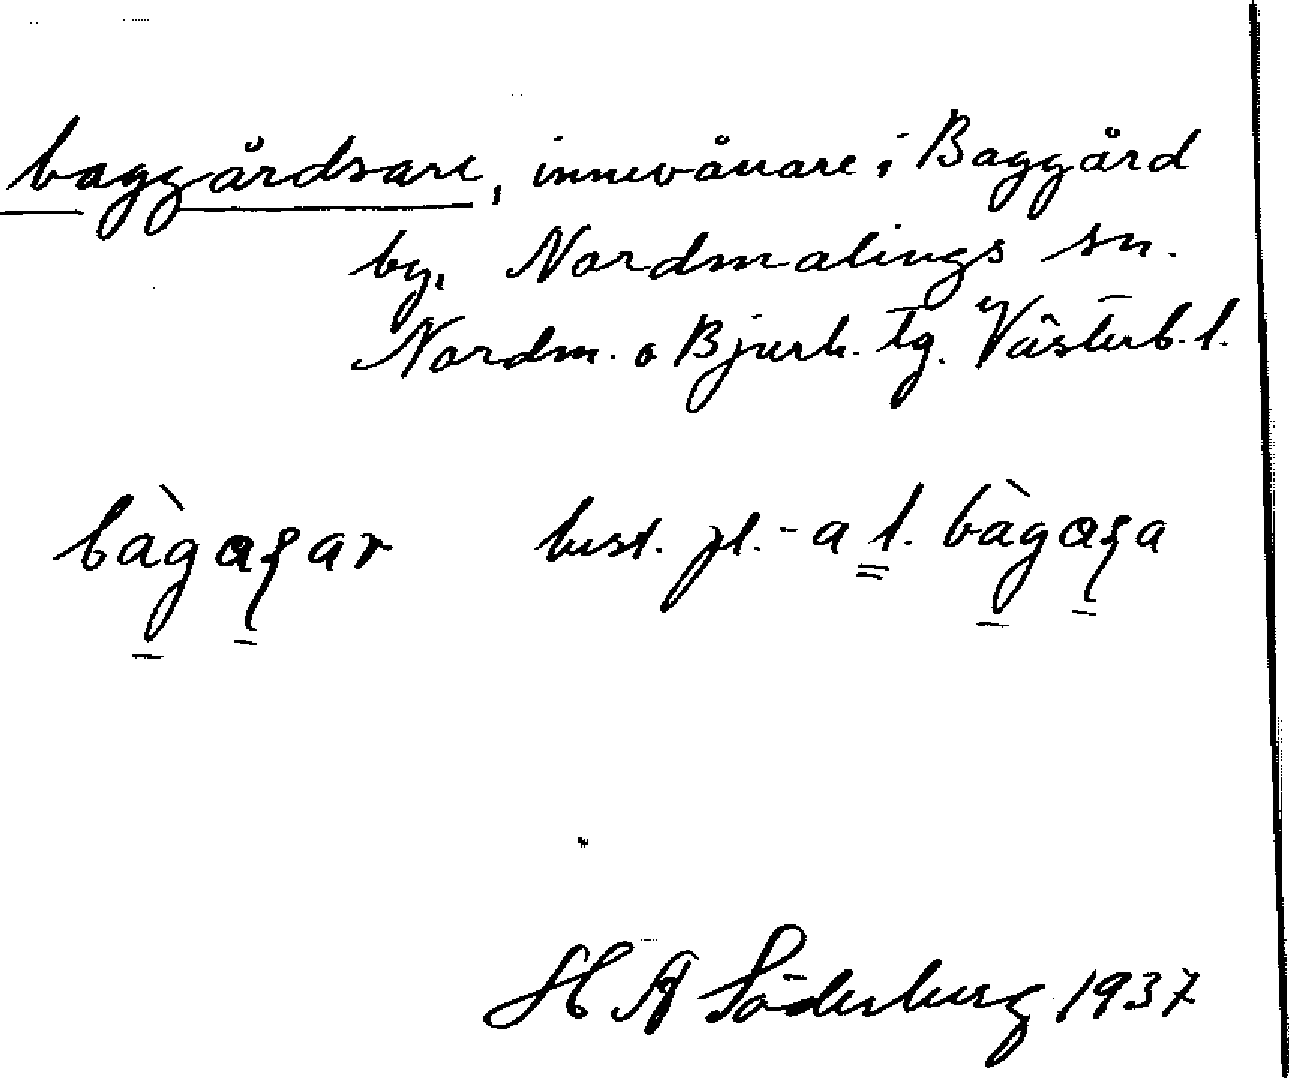 baggårdsare, innevånare i Baggård
by, Nordmalings sn.
Nordm. o Bjurh. tg. Västerb. l.
bàgaʂar best. pl. -a l. bàgaʂa
H A Söderberg 1937